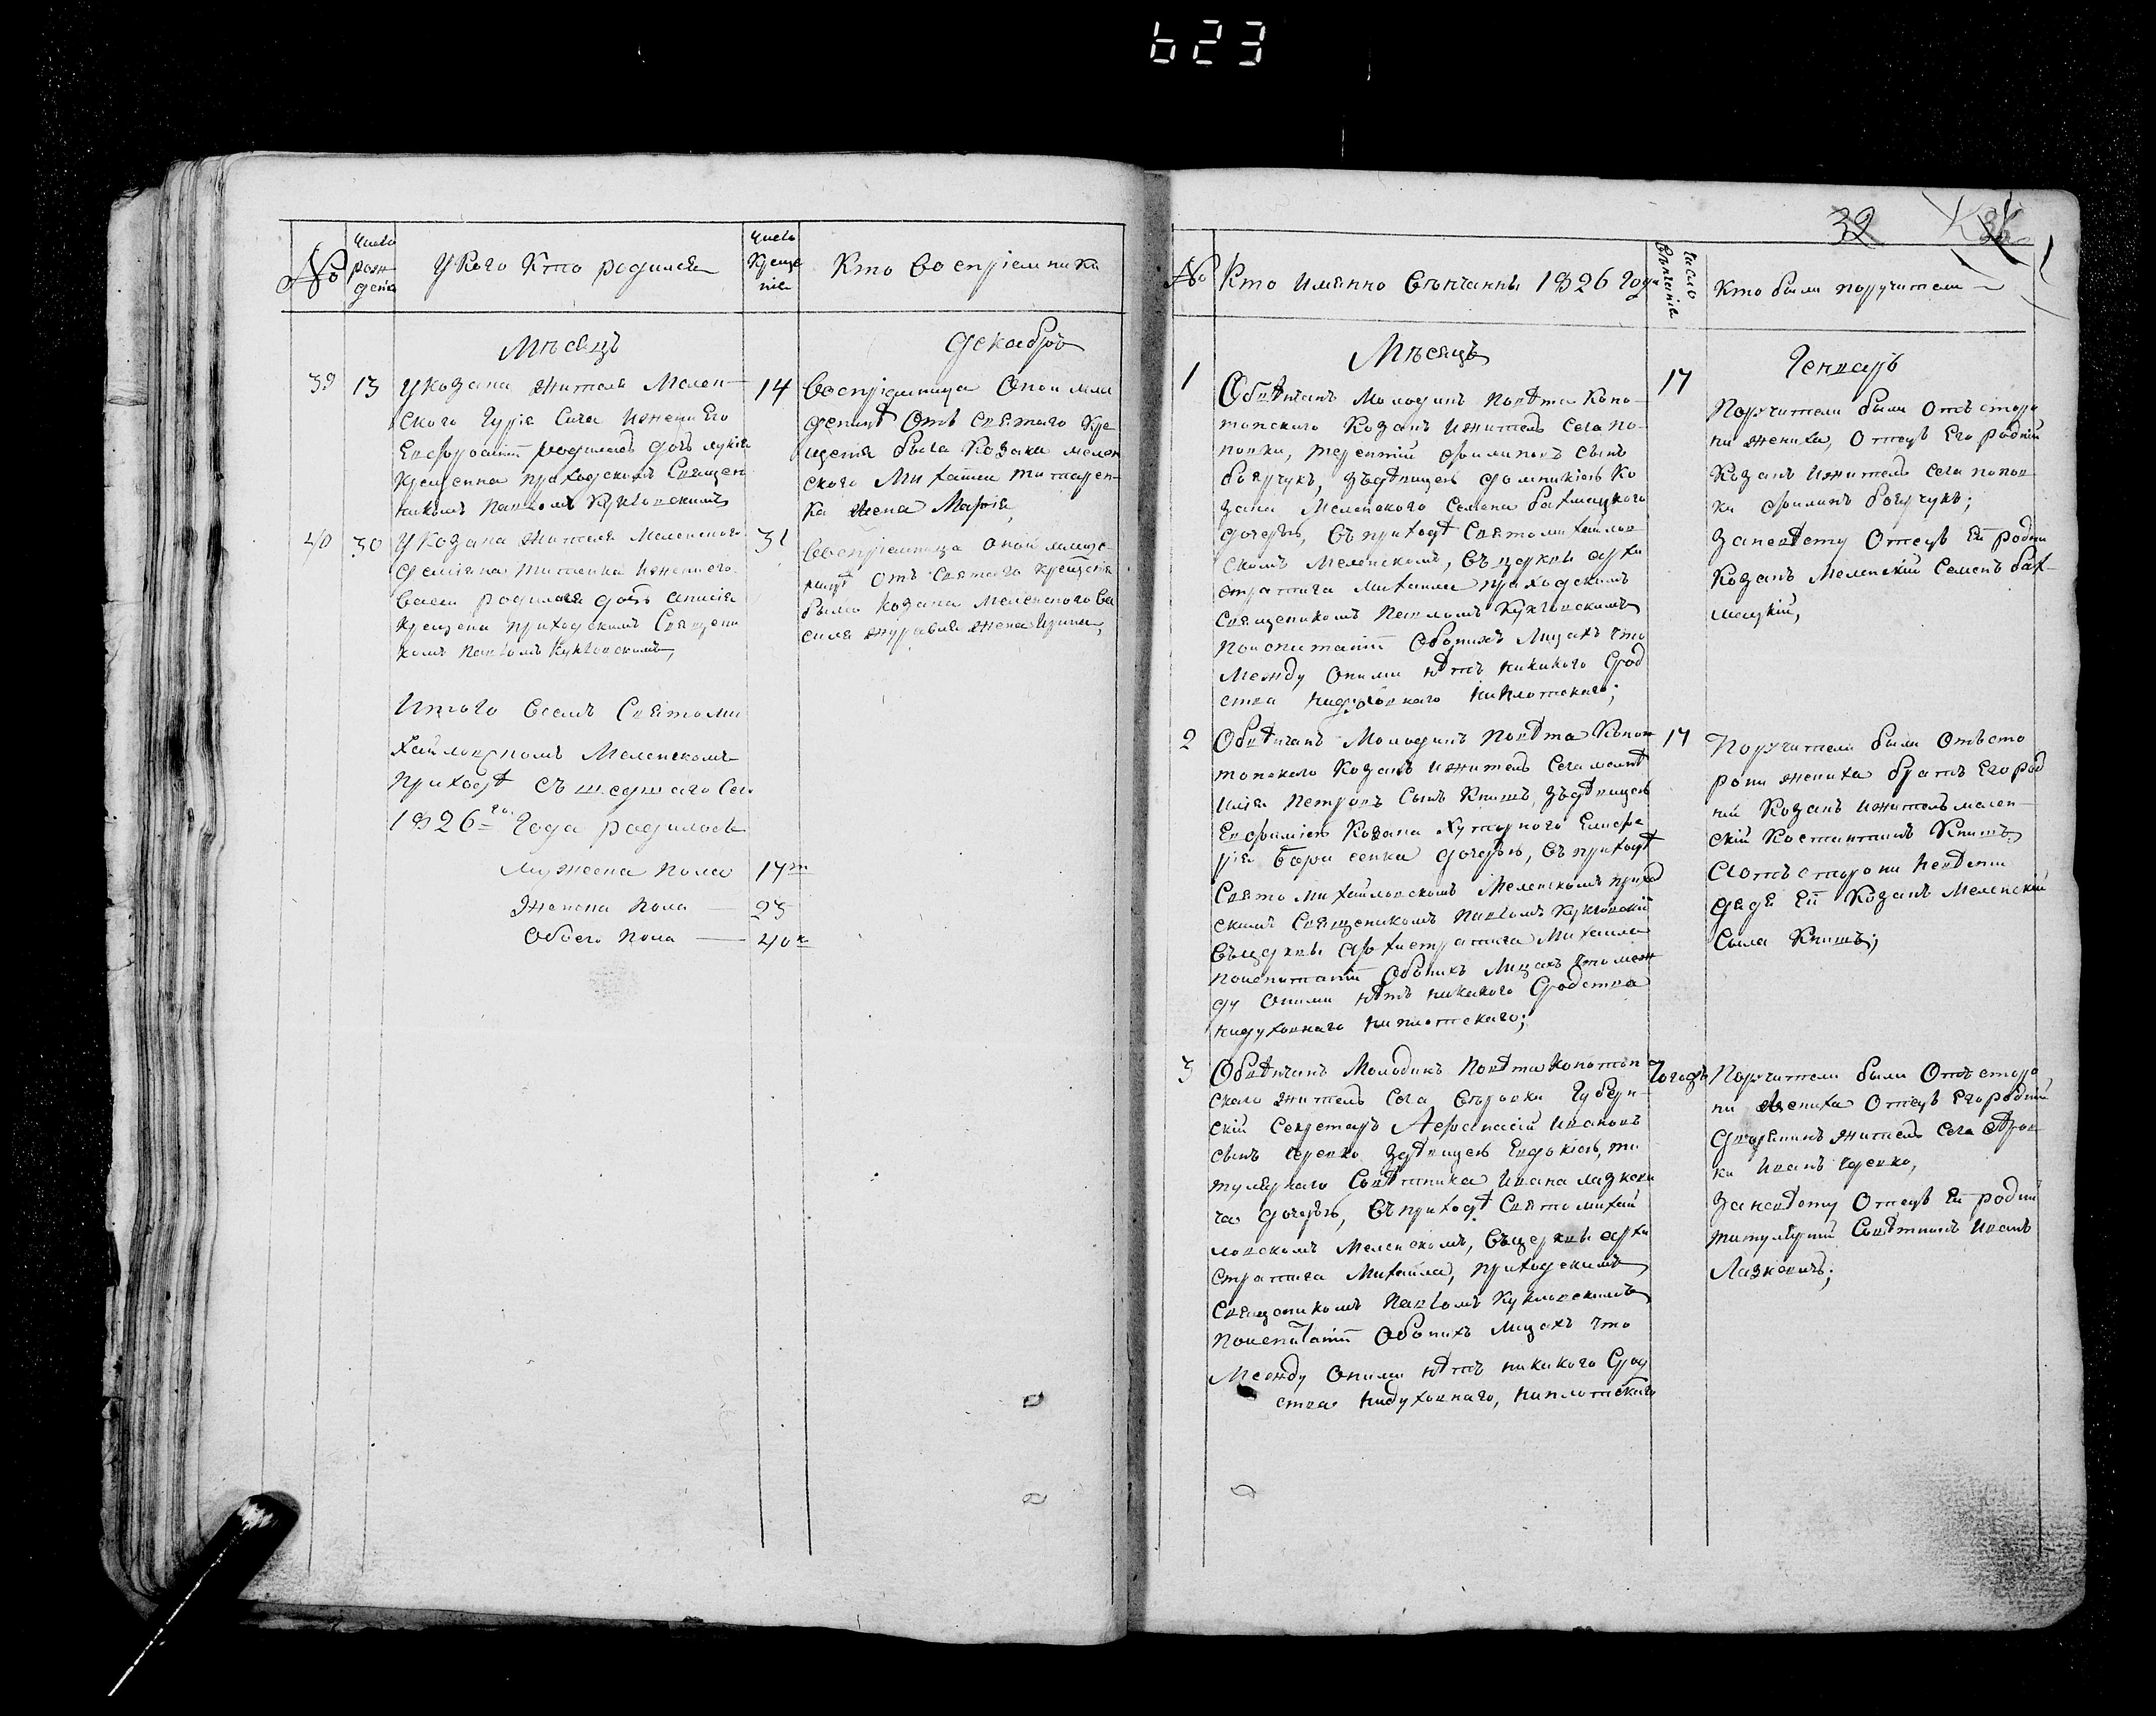 623
№
Число рождения
У Кого Кто родился
Число Крещения
Кто восприемники
Мѣсяцъ Декабръ
39 13 14
У козака жителя Мелен-
ского Гурія Сича и жени Его
Евфросиніи родилась дочь
Крещенна приходскимъ Священ
никомъ Павломъ Кукловскимъ
восприемница оной мла
денцѣ отъ Святаго Кре
щенія была Козака мелен
ского Михаила Титарен-
ка жена Марія,
40 30 31
У Козака жителя Меленского
Деміяна Титенка и жени его
родилася дочь Анисія
Крещени приходскимъ Священи
комъ Павломъ Кукловскимъ,
восприемница оной младе-
нцѣ отъ Святаго Крещенія
была Козака Меленского Ва
силя Журавля жена Ирина,
Итого всемъ Святоми
хайловскомъ Меленскомъ
приходѣ съшедшаго Сего
1826го Года родилось
Мужеска пола 17
Женска пола — 23
Обоего пола — 40
32
№
Кто имянно вѣнчанны 1826 Года
Число вѣнчанія
Кто были поручители
Мѣсяцъ Генваръ
1 17
Обвѣнчанъ Молодикъ повѣта Коно-
топского Козакъ и житель Села по-
повки, Терентій Филиповъ сынъ
Бовчукъ, зъдѣвицею Домникією Ко
зака Меленского Семена Бахмацкого
дочерью, въприходѣ Святомихайлов
скомъ Меленскомъ, въцеркви архи
стратига Михаила приходскимъ
Священикомъ Павломъ Кукловскимъ
поиспитаніи обоихъ лицахъ что
между оними нѣтъ никакого Срод
ства нидуховнаго ниплотскаго;
Поручители были отъсторо
ни жениха, Отецъ Его родній
Козакъ и житель села попов
ки Филипъ Бовчукъ;
Заневѣсту Отецъ Еѣ родни
Козакъ Меленскій Семенъ Бах-
мацкій,
2 17
Обвѣнчанъ Молодикъ повѣта Коно
топского Козакъ и житель Села меленѣ
Илія Петровъ Сынъ Книшъ, зъдѣвицею
Евфимією Козака Хуторного
Борисенка дочерью, въприходѣ
Святомихайловскомъ Меленскомъ приход
скимъ Священикомъ Павломъ Кукловскій
въцеркви Архистратига Михаила
поиспитаніи обоихъ лицахъ что меж
ду оними нѣтъ никакого Сродства
нидуховнаго ниплотскаго;
Поручители были отъсто
рони жениха братъ Его род
ній Козакъ и житель мелен-
скій Костантинъ Книшъ,
Аотъсторони невѣсти
дядя Еѣ Козакъ Меленскій
Сыла Книшъ;
3
Обвѣнчанъ Молодикъ повѣта Конотоп
ского житель Села вировки Губерн-
скій Секретаръ Афанасій Ивановъ
сынъ Здѣвицею Евдокією, ти
тулярнаго Совѣтника Ивана Лазкеви
ча дочерью, въприходѣ Святомихай
ловскомъ Меленскомъ, въцеркви архи
стратига Михаила, приходскимъ
Священикомъ Павломъ Кукловскимъ
поиспитаніи обоихъ лицахъ что
Между оними нѣтъ никакого Срод
ства нидуховнаго, ниплотскаго
Поручители были Отъсторо
ни жениха Отецъ Его родній
Дворянинъ житель Села
Иванъ
Заневѣсту Отецъ Еѣ родній
титулярній Совѣтникъ Иванъ
Лазкевичъ;